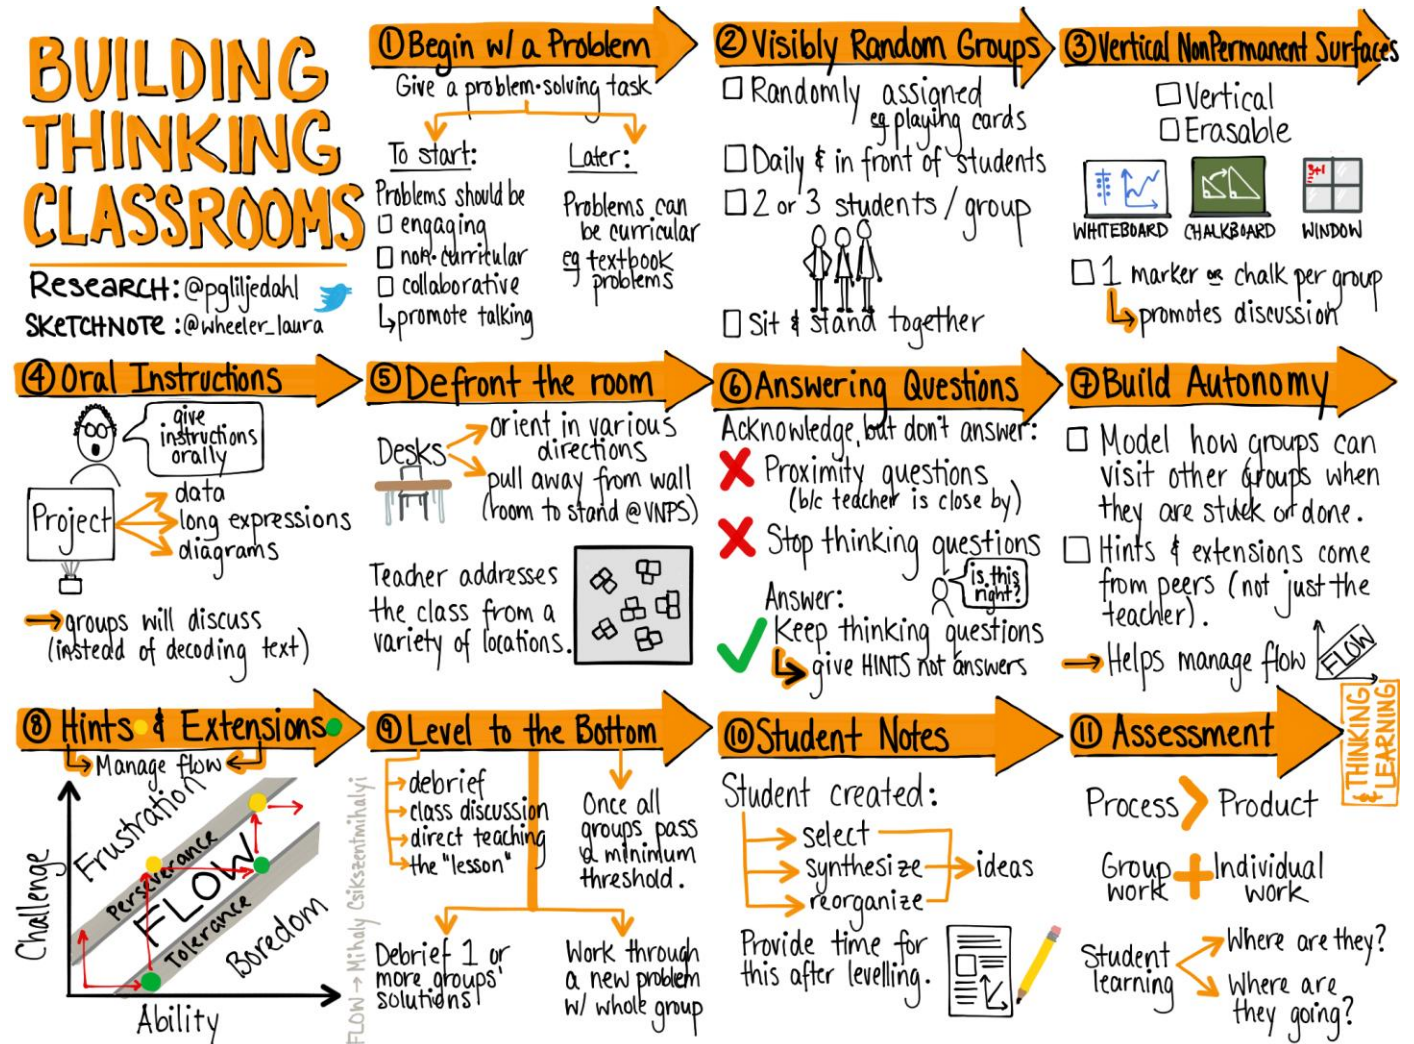 BUILDING
THINKING
CLASSROOMS
RESEARCH: @pgliljedahl
SKETCHNOTE: @wheeler_laura
① Begin w/ a Problem
Give a problem-solving task
To start:
Problems should be
engaging
non-curricular
collaborative
promote talking
Later:
Problems can
be curricular
eg textbook
problems
② Visibly Random Groups
Randomly assigned
eg playing cards
Daily & in front of students
2 or 3 students / group
Sit & stand together
③ Vertical NonPermanent Surfaces
Vertical
Erasable
WHITEBOARD CHALKBOARD WINDOW
1 marker or chalk per group
promotes discussion
④ Oral Instructions
give
instructions
orally
Project
data
long expressions
diagrams
groups will discuss
(instead of decoding text)
⑤ Defront the room
Desks
orient in various
directions
pull away from wall
(room to stand @VNPS)
Teacher addresses
the class from a
variety of locations.
⑥ Answering Questions
Acknowledge, but don't answer:
Proximity questions
(b/c teacher is close by)
Stop thinking questions
is this
right?
Answer:
Keep thinking questions
give HINTS not answers
⑦ Build Autonomy
Model how groups can
visit other groups when
they are stuck or done.
Hints & extensions come
from peers (not just the
teacher).
Helps manage flow
FLOW
⑧ Hints & Extensions
Manage flow
Challenge
Frustration
Perseverance
FLOW
Tolerance
Boredom
Ability
FLOW → Mihaly Csikszentmihalyi
⑨ Level to the Bottom
debrief
class discussion
direct teaching
the "lesson"
Once all
groups pass
a minimum
threshold.
Debrief 1 or
more groups'
solutions
Work through
a new problem
w/ whole group
⑩ Student Notes
Student created:
select
synthesize
reorganize
ideas
Provide time for
this after levelling.
⑪ Assessment
& THINKING
LEARNING
Process > Product
Group
work
+
Individual
work
Student
learning
Where are they?
Where are
they going?